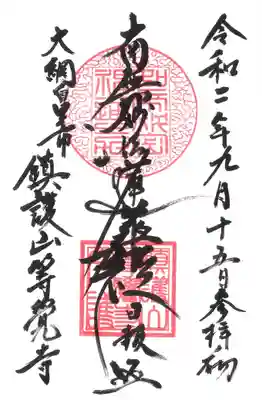 令和二年九月十五日参拝砌
南無妙法蓮華経
大網白里市 鎮護山等覚寺